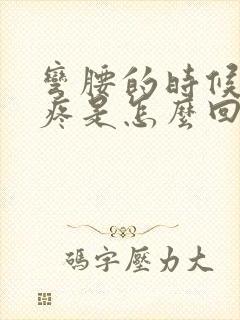 彎腰的時候
疼是怎麼回
碼字壓力大